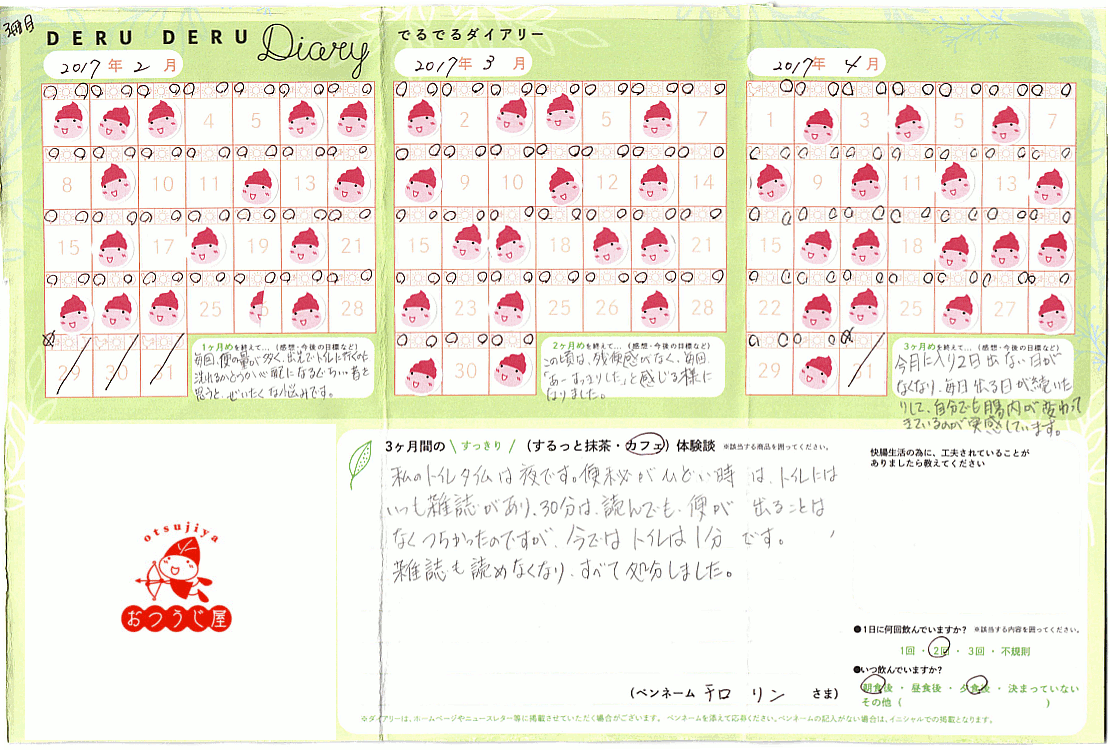 3冊目
DERU DERU Diary
でるでるダイアリー
2017年 2月
2017年 3月
2017年 4月
4 5
8 10 11 13
15 17 19 21
25 28
29 30 31
1ヶ月めを終えて…(感想・今後の目標など)
毎回、便の量が多く、出先でトイレに行くのも
流れるのかどうか心配になるぐらい。昔を
思うと、ぜいたくな悩みです。
2 5 7
9 10 12 14
15 18 21
23 25 26 28
30
2ヶ月めを終えて…(感想・今後の目標など)
この頃は、残便感がなく、毎回
「あーすっきりした」と感じる様に
なりました。
1 3 5 7
9 11 13
15 18
22 25 27
29 31
3ヶ月めを終えて…(感想・今後の目標など)
今月に入り2日出ない日が
なくなり、毎日出る日が続いた
りして、自分でも腸内が変わって
きているのが実感しています。
3ヶ月間の\すっきり/(するっと抹茶・カフェ)体験談 ※該当する商品を囲ってください。
私のトイレタイムは夜です。便秘がひどい時は、トイレには
いつも雑誌があり、30分は、読んでも、便が出ることは
なくつらかったのですが、今ではトイレは1分です。
雑誌も読めなくなり、すべて処分しました。
(ペンネーム リン さま)
快腸生活の為に、工夫されていることが
ありましたら教えてください
●1日に何回飲んでいますか? ※該当する内容を囲ってください。
1回・2回・3回・不規則
●いつ飲んでいますか?
朝食後・昼食後・夕食後・決まっていない
その他( )
※ダイアリーは、ホームページやニュースレター等に掲載させていただく場合がございます。 ペンネームを添えて応募ください。ペンネームの記入がない場合は、イニシャルでの掲載となります。
otsujiya
おつうじ屋